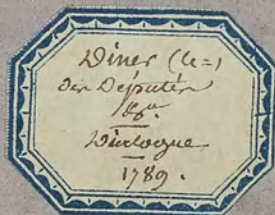 Diner (le=)
des Députés
Dialogue
1789.